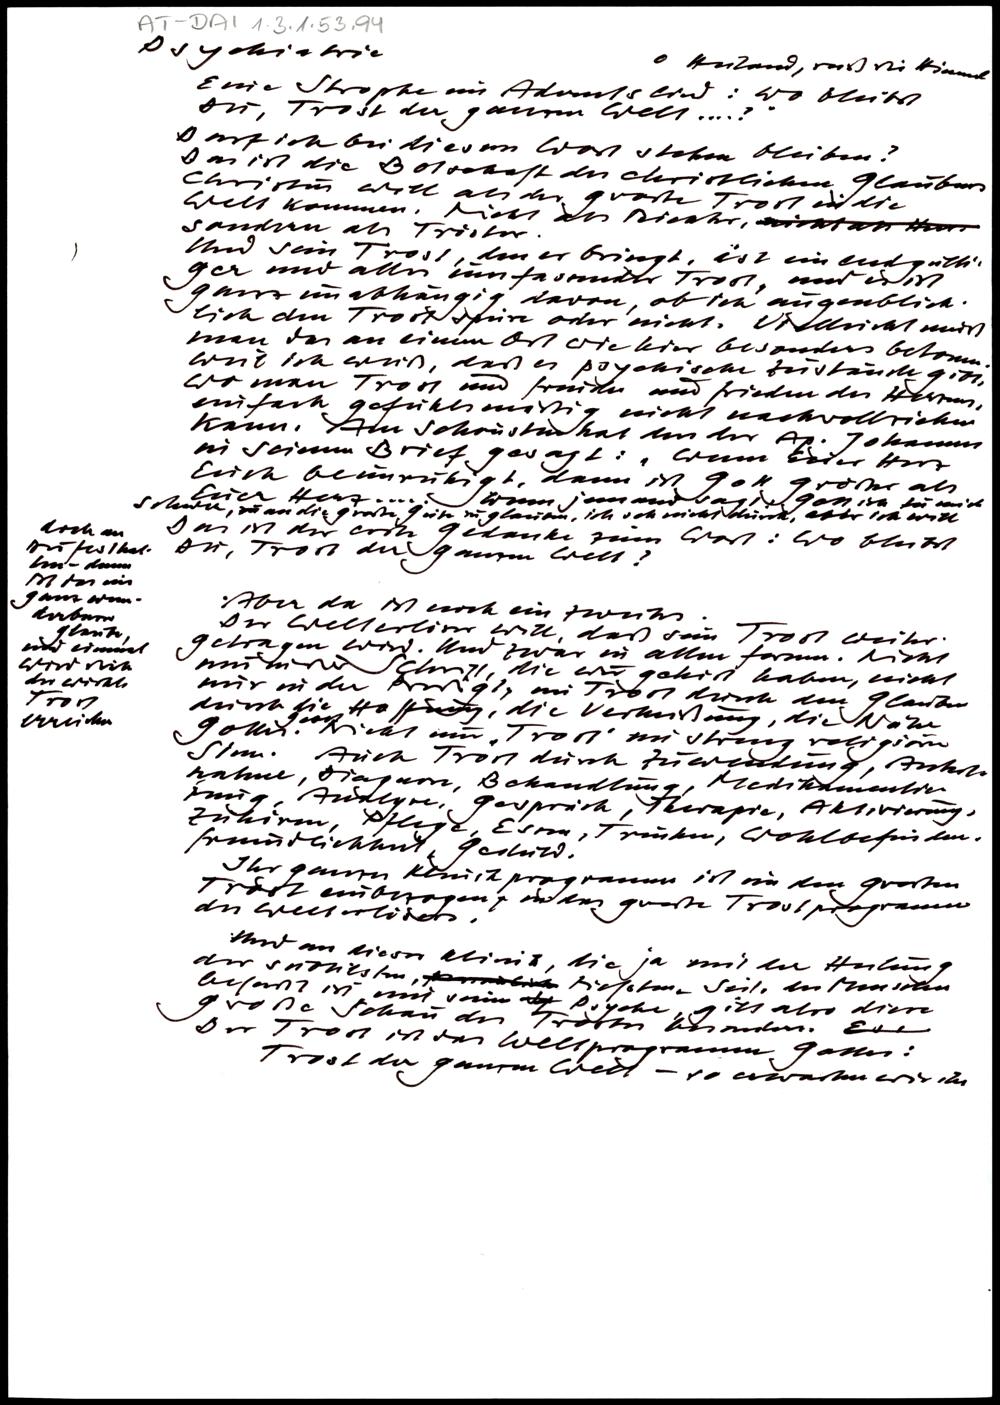 AT-DAI 1.3.1.53.94
Psychiatrie
O Heiland, reiß die Himmel
Eine Strophe im Adventslied: "Wo bleibst
Du, Trost der ganzen Welt ....?"
Darf ich bei diesem Wort stehen bleiben?
Das ist die Botschaft des christlichen Glaubens
Christus will als der große Trost in die
Welt kommen. Nicht als Richter, nicht als Herr.
sondern als Tröster.
Und sein Trost, den er bringt, ist ein endgülti-
ger und alles umfassender Trost, und er ist
ganz unabhängig davon, ob ich augenblick-
lich den Trost spüre oder nicht. Vielleicht muß
man das an einem Ort wie hier besonders betonen,
weil ich weiß, daß es psychische Zustände gibt,
wo man Trost und Freude und Frieden des Herzens,
einfach gefühlsmäßig nicht nachvollziehen
kann. Am schönsten hat das der Ap. Johannes
in seinem Brief gesagt: "Wenn Euer Herz
Euch beunruhigt, dann ist Gott größer als
Euer Herz ....." Wenn jemand sagt, Gott ist zu mir
schwer, an die große Güte zu glauben, ich seh nicht durch, aber ich will
doch an
Dir festhal-
ten - dann
ist das ein
ganz wun-
derbarer
Glaube,
und einmal
wird dich
der wirkl.
Trost
erreichen
Das ist der erste Gedanke zum Wort: Wo bleibst
Du, Trost der ganzen Welt?
Aber da ist noch ein zweites.
Der Welterlöser will, daß sein Trost weiter-
getragen wird. Und zwar in allen Formen. Nicht
nur in der Schrift, die wir gehört haben, nicht
nur in der Predigt, im Trost durch den Glauben
durch die Hoffnung, die Verheißung, die Nähe
Gottes. Nicht nur "Trost" im streng religiösen
Sinn. Auch Trost durch Zuwendung, Anteil-
nahme, Diagnose, Behandlung, Medikamentie-
rung, Analyse, Gespräch, Therapie, Aktivierung,
Zuhören, Pflege, Essen, Trinken, Wohlbefinden.
Freundlichkeit, Geduld.
Ihr ganzes Klinikprogramm ist in den großen
Trost einbezogen, in das große Trostprogramm
des Welterlösers.
Und an dieser Klinik, die ja mit der Heilung
der subtilsten, tiefsten Seite des Menschen
befaßt ist mit seiner Psyche, gilt also diese
große Schau des Trostes besonders.
Der Trost ist das Weltprogramm Gottes:
Trost der ganzen Welt - so erwarten wir ihn